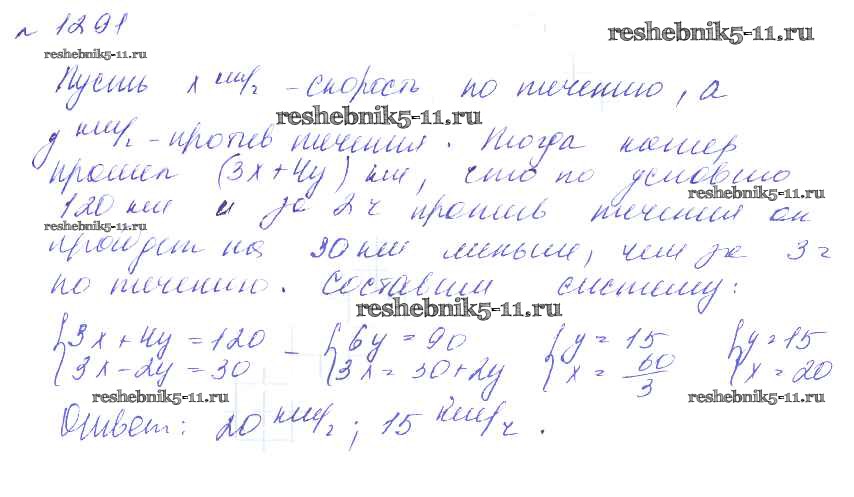 № 1291
reshebnik5-11.ru
reshebnik5-11.ru
Пусть x км/ч – скорость по течению, а
reshebnik5-11.ru
y км/ч – против течения. Тогда катер
прошел (3x+4y) км, что по условию
reshebnik5-11.ru
120 км и за 2ч против течения он
reshebnik5-11.ru
пройдет на 30 км меньше, чем за 3 ч
по течению. Составим систему:
reshebnik5-11.ru
{3x+4y=120 – {6y=90 {y=15 {y=15
{3x-2y=30 {3x=30+2y {x=60/3 {x=20
reshebnik5-11.ru
reshebnik5-11.ru
Ответ: 20 км/ч; 15 км/ч.